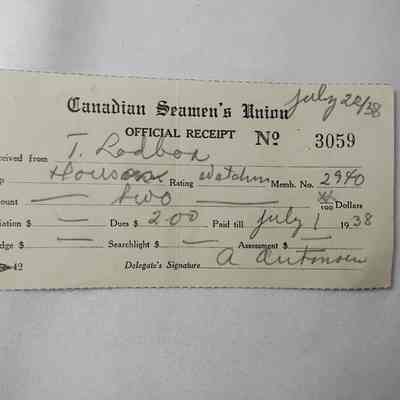 Canadian Seamen's Union July 20/38
OFFICIAL RECEIPT Nº 3059
ceived from T. Lodbox
p Rating Watchm Memb. No. 2940
ount — two — xx/100 Dollars
iation $ — Dues $ 2.00 Paid till July 1 1938
dge $ — Searchlight $ — Assessment $ —
42 Delegate's Signature A